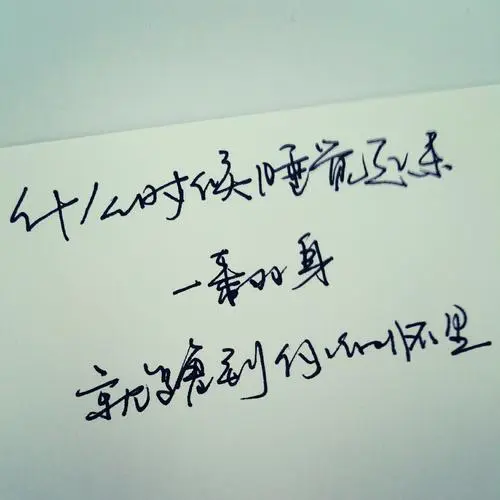 什么时候睡觉还
一的身
就到你的怀里